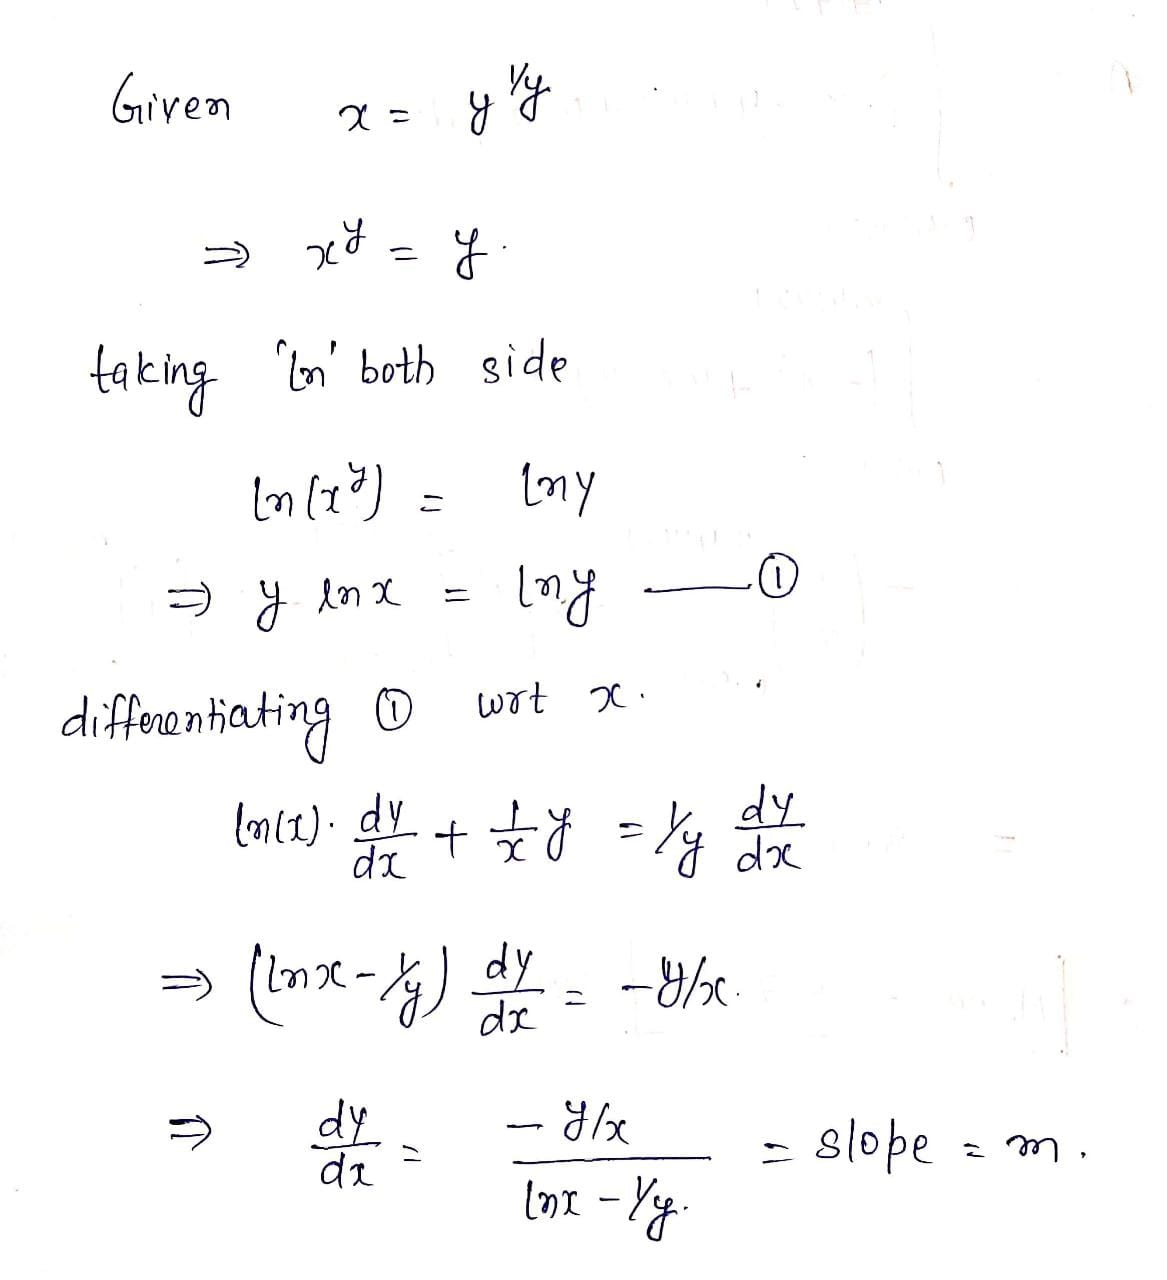 Given x = y^1/y
⇒ x^y = y.
taking 'ln' both side
ln(x^y) = lny
⇒ y lnx = lny —— ①
differentiating ① wrt x.
ln(x). dy/dx + 1/x y = 1/y dy/dx
⇒ (lnx - 1/y) dy/dx = -y/x.
⇒ dy/dx = (-y/x)/(lnx - 1/y.) = slope = m.